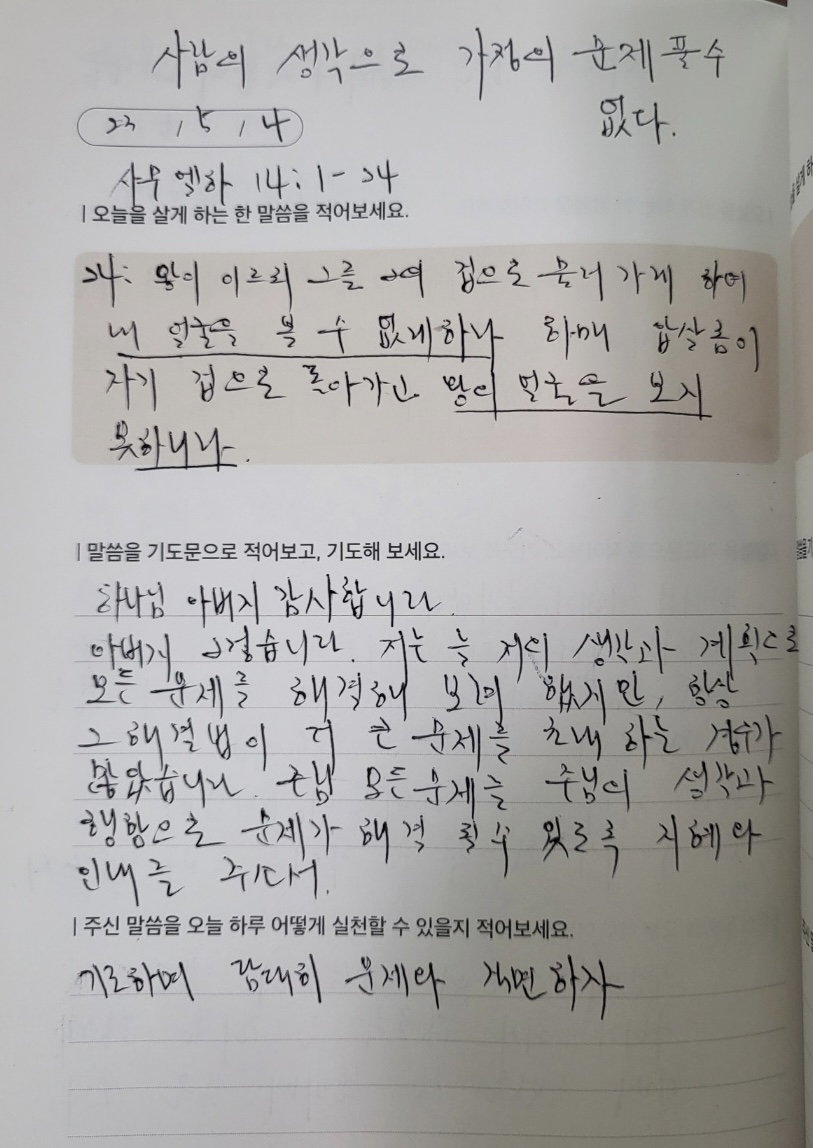 사람의 생각으로 가정의 문제 풀수
없다.
23 , 5 , 4
사무엘하 14:1-24
| 오늘을 살게 하는 한 말씀을 적어보세요.
24: 왕이 이르되 그를 그의 집으로 물러가게 하여
내 얼굴을 볼 수 없게하라 하매 압살롬이
자기 집으로 돌아가고 왕의 얼굴을 보지
못하니라.
| 말씀을 기도문으로 적어보고, 기도해 보세요.
하나님 아버지 감사합니다.
아버지 그렇습니다. 저는 늘 저의 생각과 계획으로
모든 문제를 해결해 보려 했지만, 항상
그 해결법이 더 큰 문제를 초래 하는 경우가
많았습니다. 주님 모든문제를 주님의 생각과
행함으로 문제가 해결 될수 있도록 지혜와
인내를 주다서.
| 주신 말씀을 오늘 하루 어떻게 실천할 수 있을지 적어보세요.
기도하며 담대히 문제와 직면하자